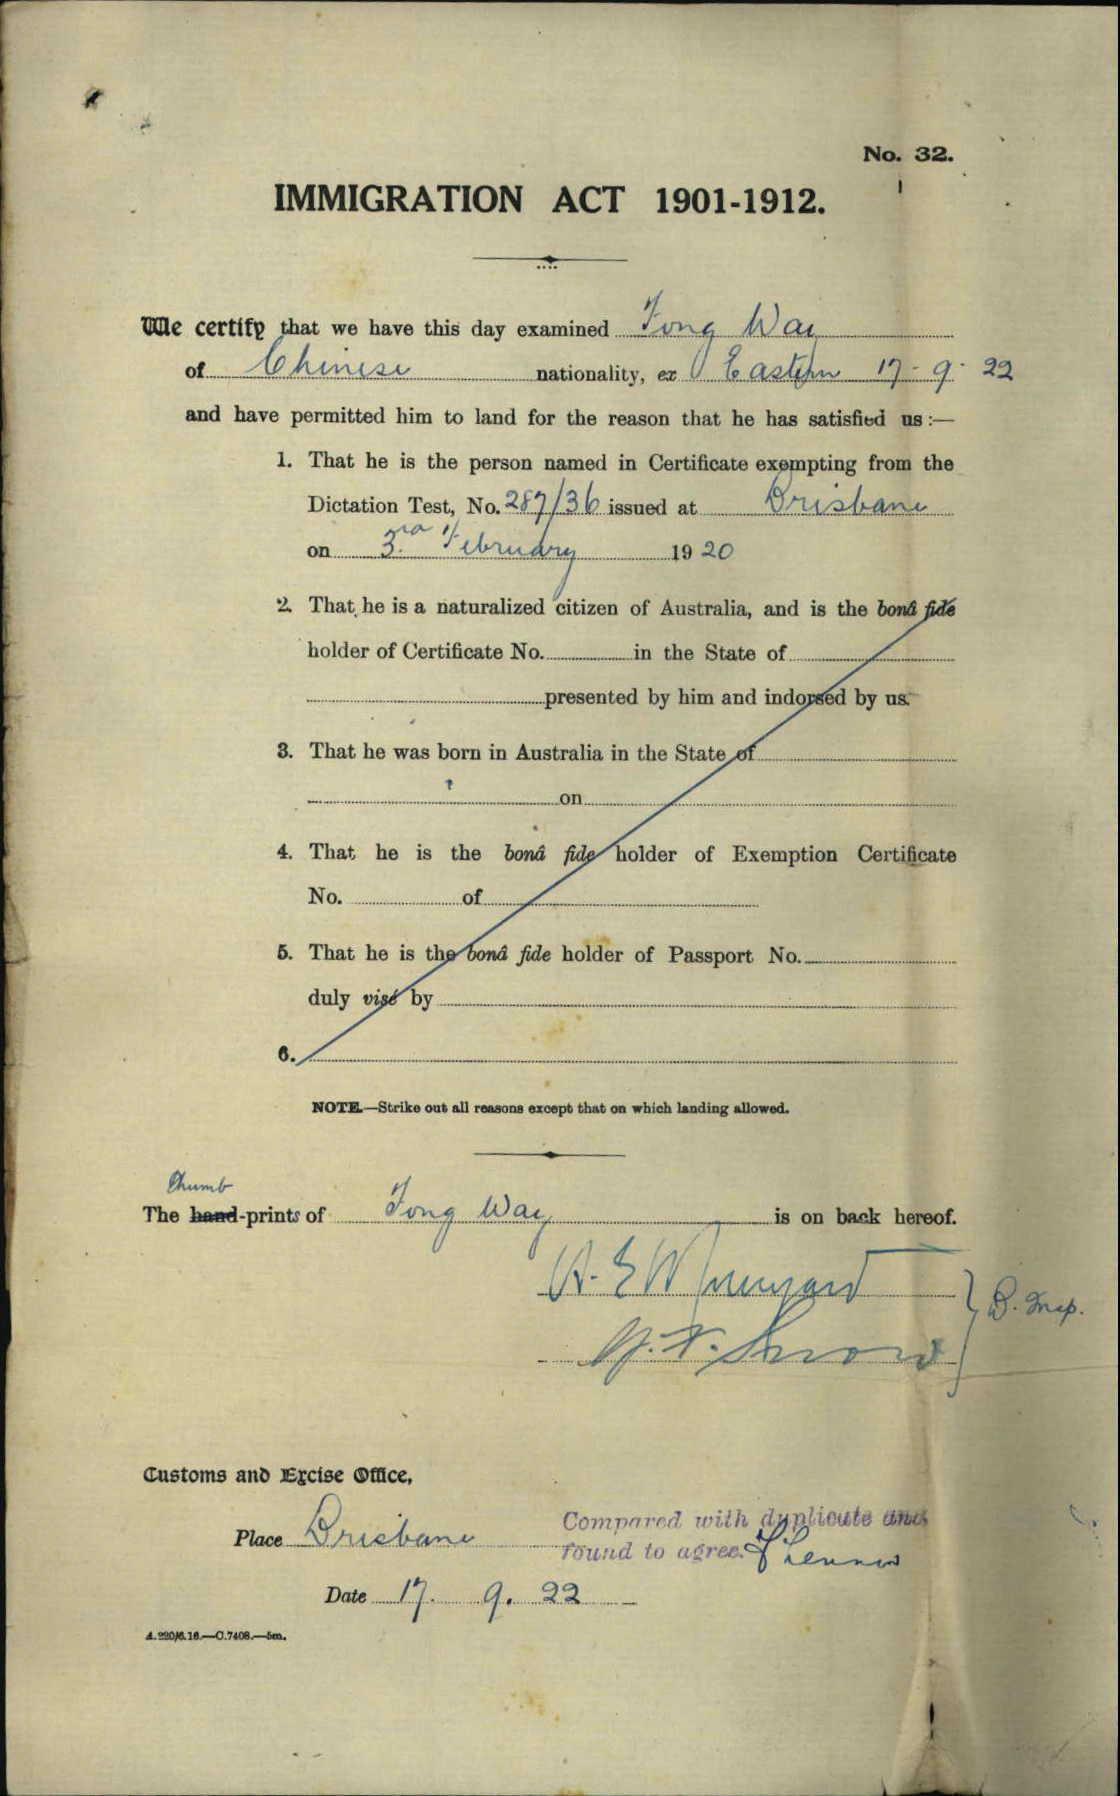 No. 32.
IMMIGRATION ACT 1901-1912.
We certify that we have this day examined Fong Way
of Chinese nationality, ex Eastern 17-9-22
and have permitted him to land for the reason that he has satisfied us:—
1. That he is the person named in Certificate exempting from the
Dictation Test, No. 287/36 issued at Brisbane
on 3rd February 1920
2. That he is a naturalized citizen of Australia, and is the bonâ fide
holder of Certificate No. in the State of
presented by him and indorsed by us.
3. That he was born in Australia in the State of
on
4. That he is the bonâ fide holder of Exemption Certificate
No. of
5. That he is the bonâ fide holder of Passport No.
duly visé by
6.
NOTE.—Strike out all reasons except that on which landing allowed.
Thumb
The hand-prints of Fong Way is on back hereof.
B. Insp.
Snow
Customs and Excise Office,
Place Brisbane
Compared with duplicate and
found to agree.
Date 17. 9. 22
A.220/6.16.—C.7408.—5m.